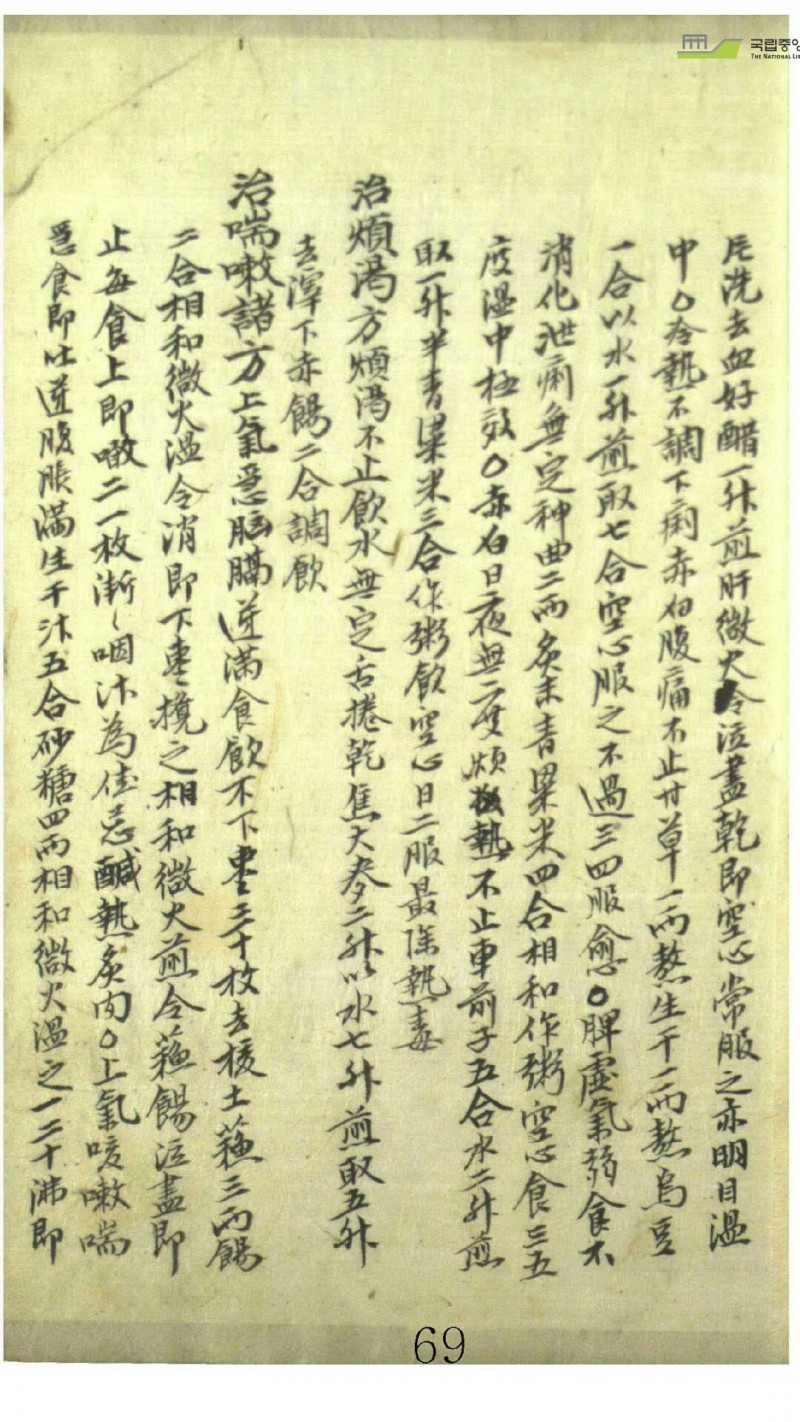 片洗去血好醋一升煎肝微火令泣盡乾即空心常服之亦明目溫
中○冷熱不調下痢赤白腹痛不止甘草一兩熬生干一兩熬烏豆
一合以水一升煎取七合空心服之不過三四服愈○脾虛氣弱食不
消化泄痢無定神曲二兩炙末青粱米四合相和作粥空心食三五
度溫中極效○赤白日夜無度煩熱不止車前子五合水二升煎
取一升半青粱米三合作粥飲空心日二服最除熱毒
治煩渴方煩渴不止飲水無定舌捲乾焦大麥二升以水七升煎取五升
去滓下赤餳二合調飲
治喘嗽諸方上氣急胸膈逆滿食飲不下棗三十枚去核土蘓三兩餳
二合相和微火溫令消即下棗攪之相和微火煎令蘓餳泣盡即
止每食上即噉一二枚漸〻咽汁為佳忌鹹熱炙肉○上氣咳嗽喘
急食即吐逆腹脹滿生干汁五合砂糖四兩相和微火溫之一二十沸即
69
국립중앙
THE NATIONAL LIB